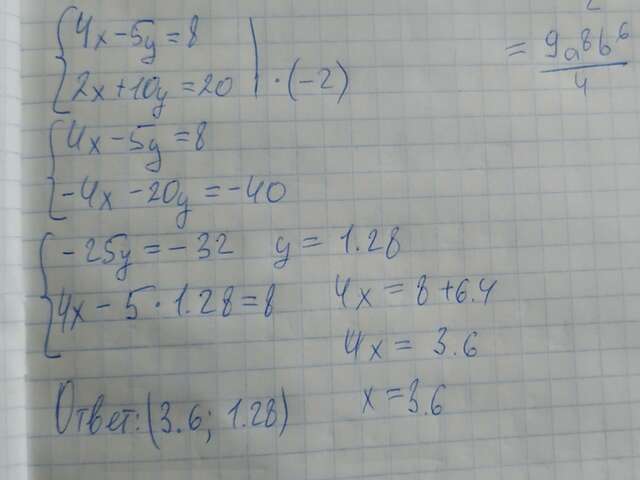 4x-5y=8
2x+10y=20 | ·(-2)
= 9a⁸b⁶/4
4x-5y=8
-4x-20y=-40
-25y=-32 y=1.28
4x-5·1.28=8 4x=8+6.4
4x=3.6
x=3.6
Ответ: (3.6; 1.28)